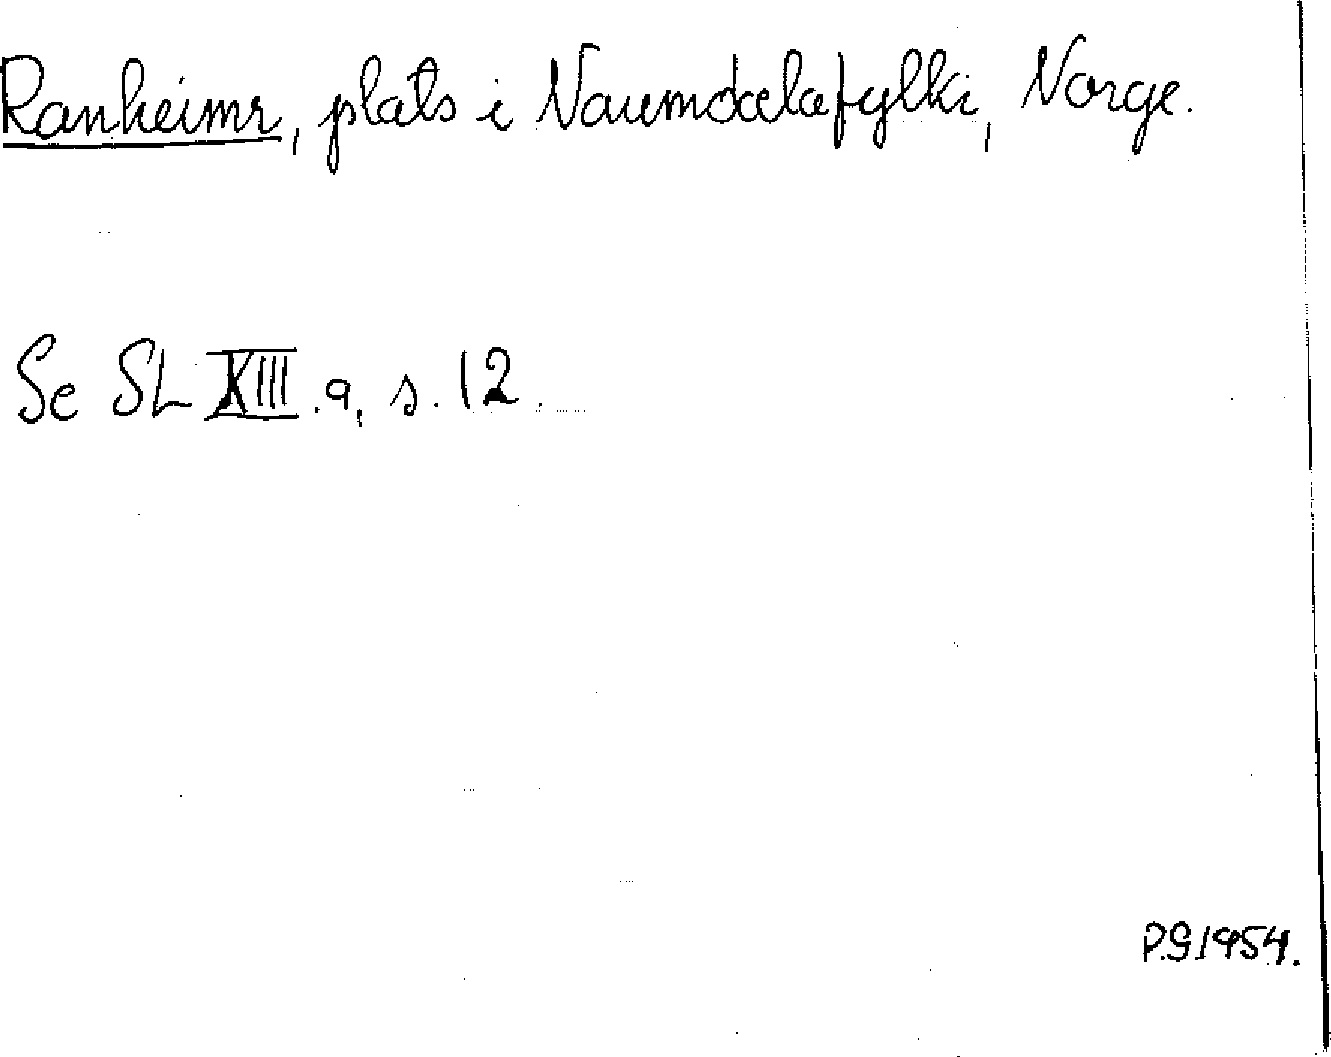 Ranheimr, plats i Naumdœlafylki, Norge.
Se SL XIII.9, s. 12.
P.G. 1954.